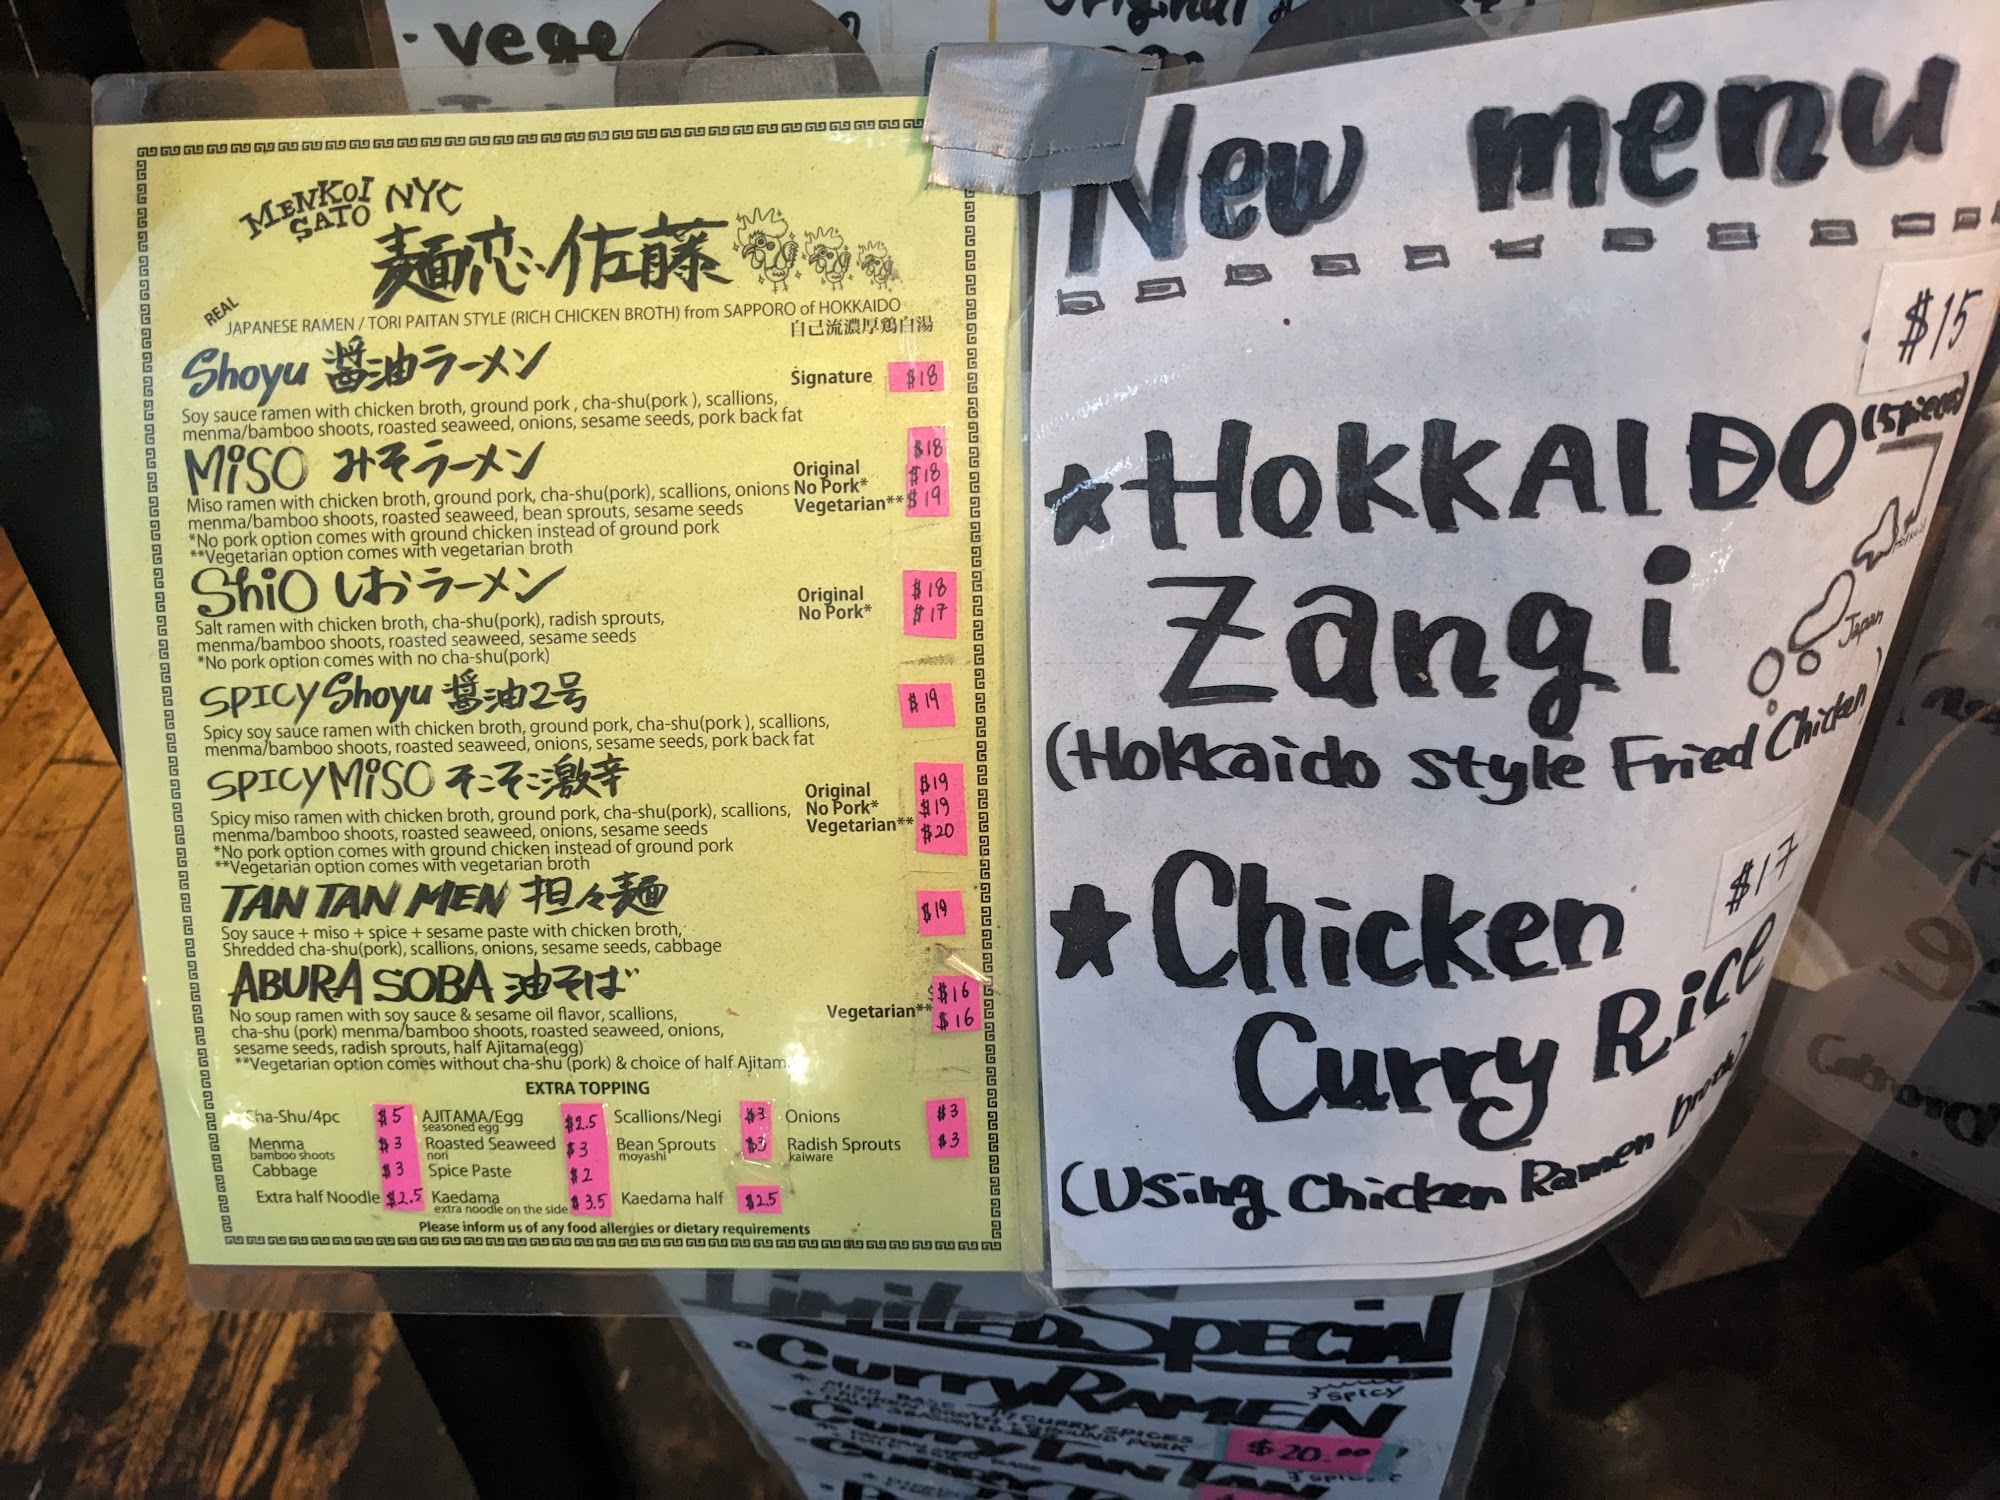 · vege
original
MENKOI SATO NYC
麺恋:佐藤
REAL
JAPANESE RAMEN / TORI PAITAN STYLE (RICH CHICKEN BROTH) from SAPPORO of HOKKAIDO
自己流濃厚鶏白湯
Shoyu 醤油ラーメン
Signature $18
Soy sauce ramen with chicken broth, ground pork , cha-shu(pork ), scallions,
menma/bamboo shoots, roasted seaweed, onions, sesame seeds, pork back fat
MiSO みそラーメン
Original $18
No Pork* $18
Vegetarian** $19
Miso ramen with chicken broth, ground pork, cha-shu(pork), scallions, onions
menma/bamboo shoots, roasted seaweed, bean sprouts, sesame seeds
*No pork option comes with ground chicken instead of ground pork
**Vegetarian option comes with vegetarian broth
ShiO しおラーメン
Original $18
No Pork* $17
Salt ramen with chicken broth, cha-shu(pork), radish sprouts,
menma/bamboo shoots, roasted seaweed, sesame seeds
*No pork option comes with no cha-shu(pork)
SPICY Shoyu 醤油2号 $19
Spicy soy sauce ramen with chicken broth, ground pork, cha-shu(pork ), scallions,
menma/bamboo shoots, roasted seaweed, onions, sesame seeds, pork back fat
SPICY MiSO そこそこ激辛
Original $19
No Pork* $19
Vegetarian** $20
Spicy miso ramen with chicken broth, ground pork, cha-shu(pork), scallions,
menma/bamboo shoots, roasted seaweed, onions, sesame seeds
*No pork option comes with ground chicken instead of ground pork
**Vegetarian option comes with vegetarian broth
TAN TAN MEN 担々麺 $19
Soy sauce + miso + spice + sesame paste with chicken broth,
Shredded cha-shu(pork), scallions, onions, sesame seeds, cabbage
ABURA SOBA 油そば $16
Vegetarian** $16
No soup ramen with soy sauce & sesame oil flavor, scallions,
cha-shu (pork) menma/bamboo shoots, roasted seaweed, onions,
sesame seeds, radish sprouts, half Ajitama(egg)
**Vegetarian option comes without cha-shu (pork) & choice of half Ajitam
EXTRA TOPPING
Cha-Shu/4pc $5 AJITAMA/Egg $2.5 Scallions/Negi $3 Onions $3
seasoned egg
Menma $3 Roasted Seaweed $3 Bean Sprouts $3 Radish Sprouts $3
bamboo shoots nori moyashi kaiware
Cabbage $3 Spice Paste $2
Extra half Noodle $2.5 Kaedama $3.5 Kaedama half $2.5
extra noodle on the side
Please inform us of any food allergies or dietary requirements
New menu
$15
★HOKKAIDO (5pieces)
Zangi
Hokkaido
Japan
(Hokkaido style Fried Chicken)
$17
★Chicken
Curry Rice
(Using Chicken Ramen broth)
Limited SPECIAL
· Curry RAMEN
SPICY
* MISO BASE CURRY SPICES
CHICKEN BROTH + GROUND PORK
+ HALF SEASONED EGG
$20.00
· Curry TAN TAN